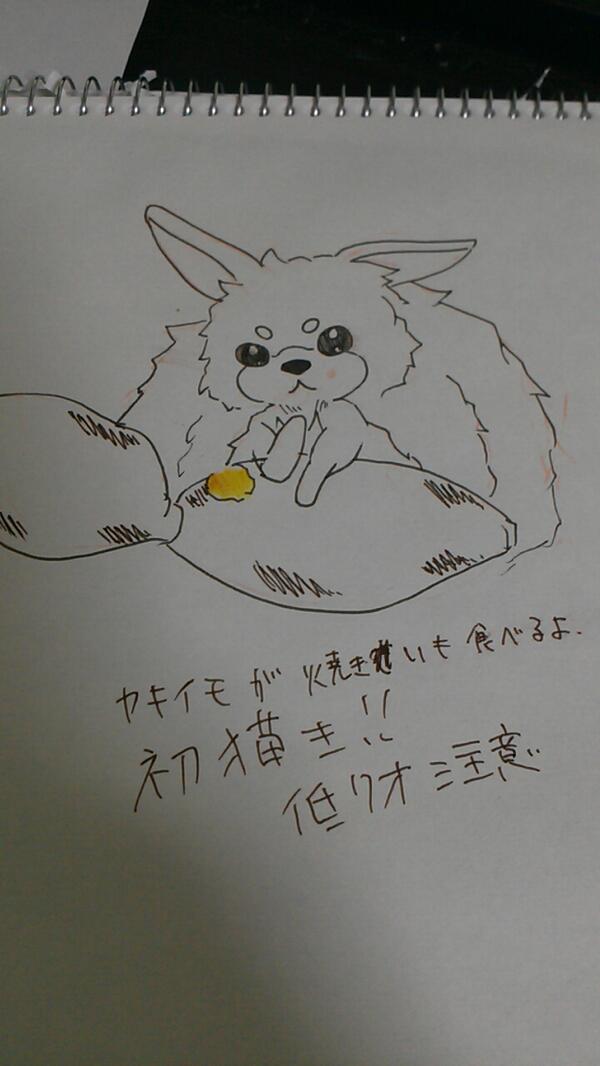 ヤキイモが焼きいも食べるよ.
初描き!!
低クオ注意